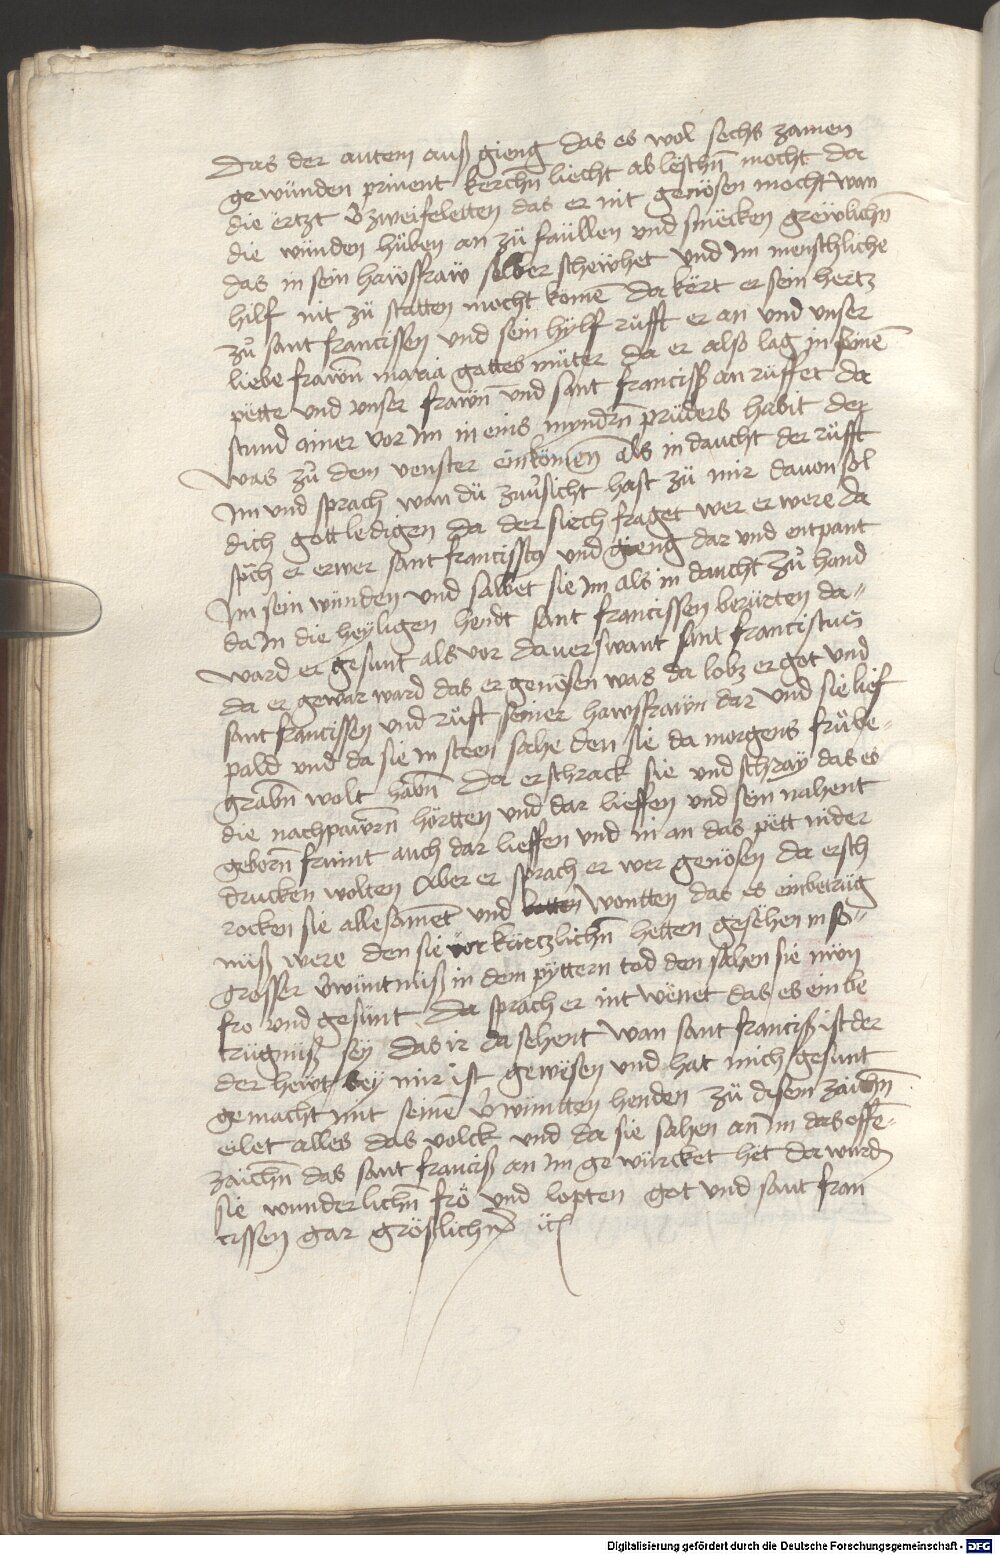 das der autem auß gieng das es wol sechs zamen
gewünden prinent kerchn̄ liecht ableschn̄ mocht da
die ertzt v̄zweifeletten das er nit genösen mocht wan
die wünden hüben an zü faüllen vnd smecken grewlichn̄
das in sein hawsfraw selber schewhet vnd Im menschliche
hilf nit zü statten mocht komē da kert er sein hertz
zů sant francissen vnd sein hylf rufft er an vnd vnser
liebe frawn̄ maria gottes müter da er also lag in seinē
pette vnd vnser frawn̄ vnd sant franciss an rüffet da
stund ainer vor Im in eins myndrn̄ prüders habit der
was zů dem venster einkomen als in daucht der rüfft
Im vnd sprach wan dü zuuͦsicht hast zü mir dauon sol
dich got ledigen da der siech fraget wer er were da
sp̄ch er er wer sant francisscꝰ vnd gieng dar vnd entpant
Im sein wünden vnd salbet sie Im als in daucht zů hand
da In die heyligen hendt sant francissen berürten da-
ward er gesunt als vor da verswant sant franciscus
da er gewar ward das er genösen was da lobz er got vnd
sant francissen vnd rüft seiner hawsfrawn dar vnd sie lief
pald vnd da sie In steen sahe den sie da morgens früe be-
grabn̄ wolt habn̄ da erschrack sie vnd schray das es
die nachpawrn̄ hörtten vnd dar lieffen vnd sein nahent
geborn̄ fraint auch dar lieffen vnd in an das pett nider
drucken wolten Aber er sprach er wer genösen da ersch
rocken sie alle samet vnd wontten das es ein betrüg
nüß were den sie vor kürtzlichn̄ hetten gesehen in so-
grosser v̄wüntnüß in dem pyttern tod den sahen sie nwn
fro vnd gesünt da sprach er nit wenet das es ein be
trügnüß sey das ir da sehent wan sant franciß ist der
der hewt bey mir ist gewesen vnd hat mich gesunt
gemacht mit seinē v̄wüntten henden zü disem zaichn̄
eilet alles das volck vnd da sie sahen an Im das offē-
zaichn̄ das sant franciß an Im gewürcket het da wurdn̄
sie wunderlichn̄ frö vnd lopten got vnd sant fran
cissen gar größlichn̄ ꝛc
Digitalisierung gefördert durch die Deutsche Forschungsgemeinschaft - DFG